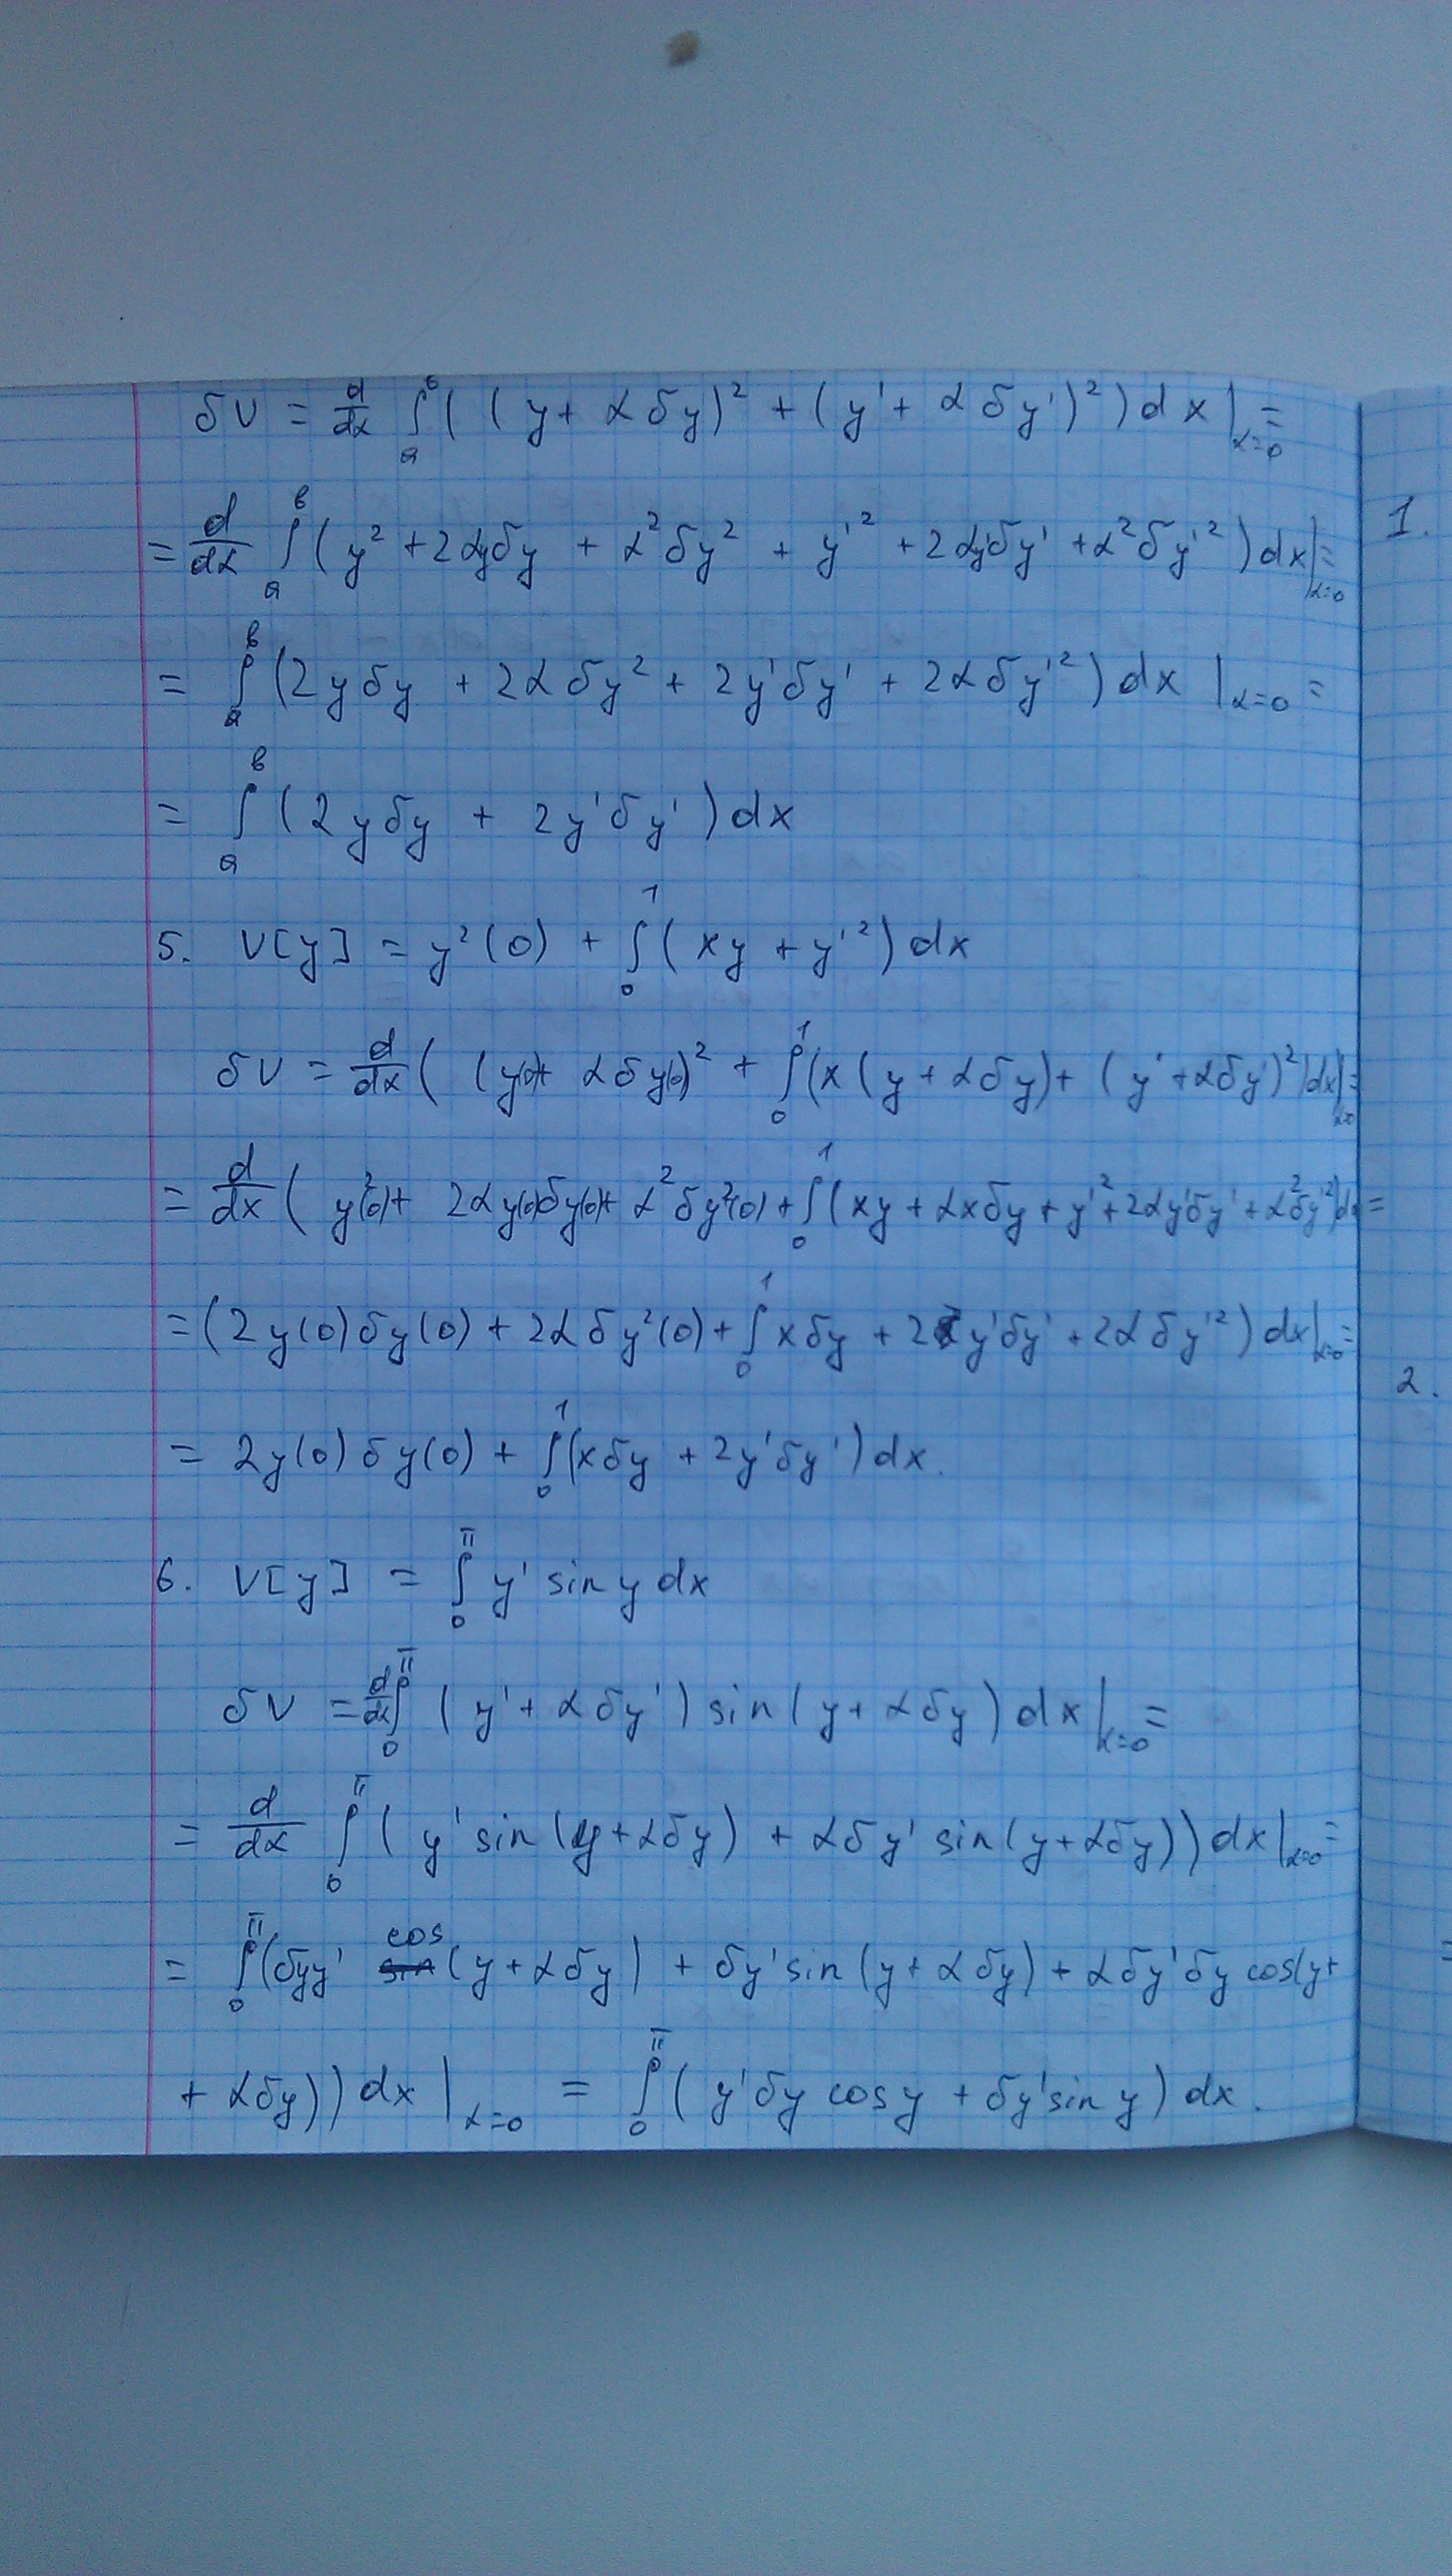 δV = d/dα ∫_a^b ((y + αδy)² + (y' + αδy')²) dx |_{α=0} =
= d/dα ∫_a^b (y² + 2αyδy + α²δy² + y'² + 2αy'δy' + α²δy'²) dx |_{α=0} =
= ∫_a^b (2yδy + 2αδy² + 2y'δy' + 2αδy'²) dx |_{α=0} =
= ∫_a^b (2yδy + 2y'δy') dx
5. V[y] = y²(0) + ∫_0^1 (xy + y'²) dx
δV = d/dα ((y(0) + αδy(0))² + ∫_0^1 (x(y + αδy) + (y' + αδy')²) dx |_{α=0} =
= d/dα (y²(0) + 2αy(0)δy(0) + α²δy²(0) + ∫_0^1 (xy + αxδy + y'² + 2αy'δy' + α²δy'²) dx =
= (2y(0)δy(0) + 2αδy²(0) + ∫_0^1 xδy + 2y'δy' + 2αδy'²) dx |_{α=0} =
= 2y(0)δy(0) + ∫_0^1 (xδy + 2y'δy') dx.
6. V[y] = ∫_0^π y' sin y dx
δV = d/dα ∫_0^π (y' + αδy') sin(y + αδy) dx |_{α=0} =
= d/dα ∫_0^π (y' sin(y + αδy) + αδy' sin(y + αδy)) dx |_{α=0} =
= ∫_0^π (δyy' cos(y + αδy) + δy' sin(y + αδy) + αδy'δy cos(y +
+ αδy)) dx |_{α=0} = ∫_0^π (y'δy cos y + δy' sin y) dx.
1.
2.
=